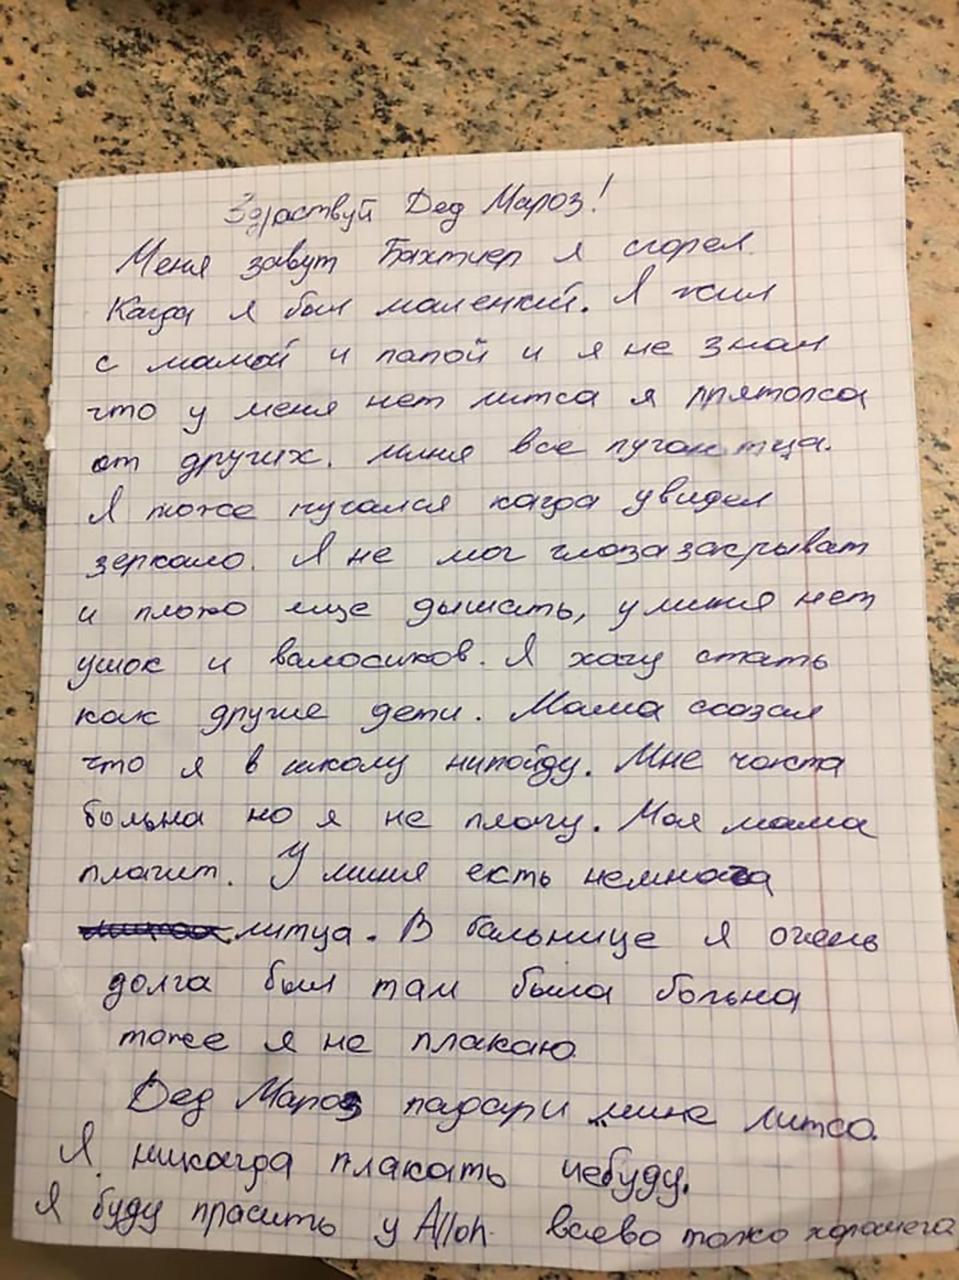 Здраствуй Дед Мароз!
Меня завут Бахтиер я сгорел
Кагда я был маленкий. Я жил
с мамой и папой и я не знал
что у меня нет литса я прятолса
от других. миня все пугаютца.
Я тоже пугался кагда увидел
зеркало. Я не мог глоза закрыват
и плохо ище дышать, у миня нет
ушок и валосиков. Я хачу стать
как другие дети. Мама сказал
что я в школу нипойду. Мне часта
больна но я не плачу. Моя мама
плачит. У миня есть немнога
литца. В бальнице я очень
долга был там была больна
тоже я не плакаю
Дед Мароз падари мине литсо.
Я никагда плакать небуду.
Я буду прасить у Alloh всево толко хорошега